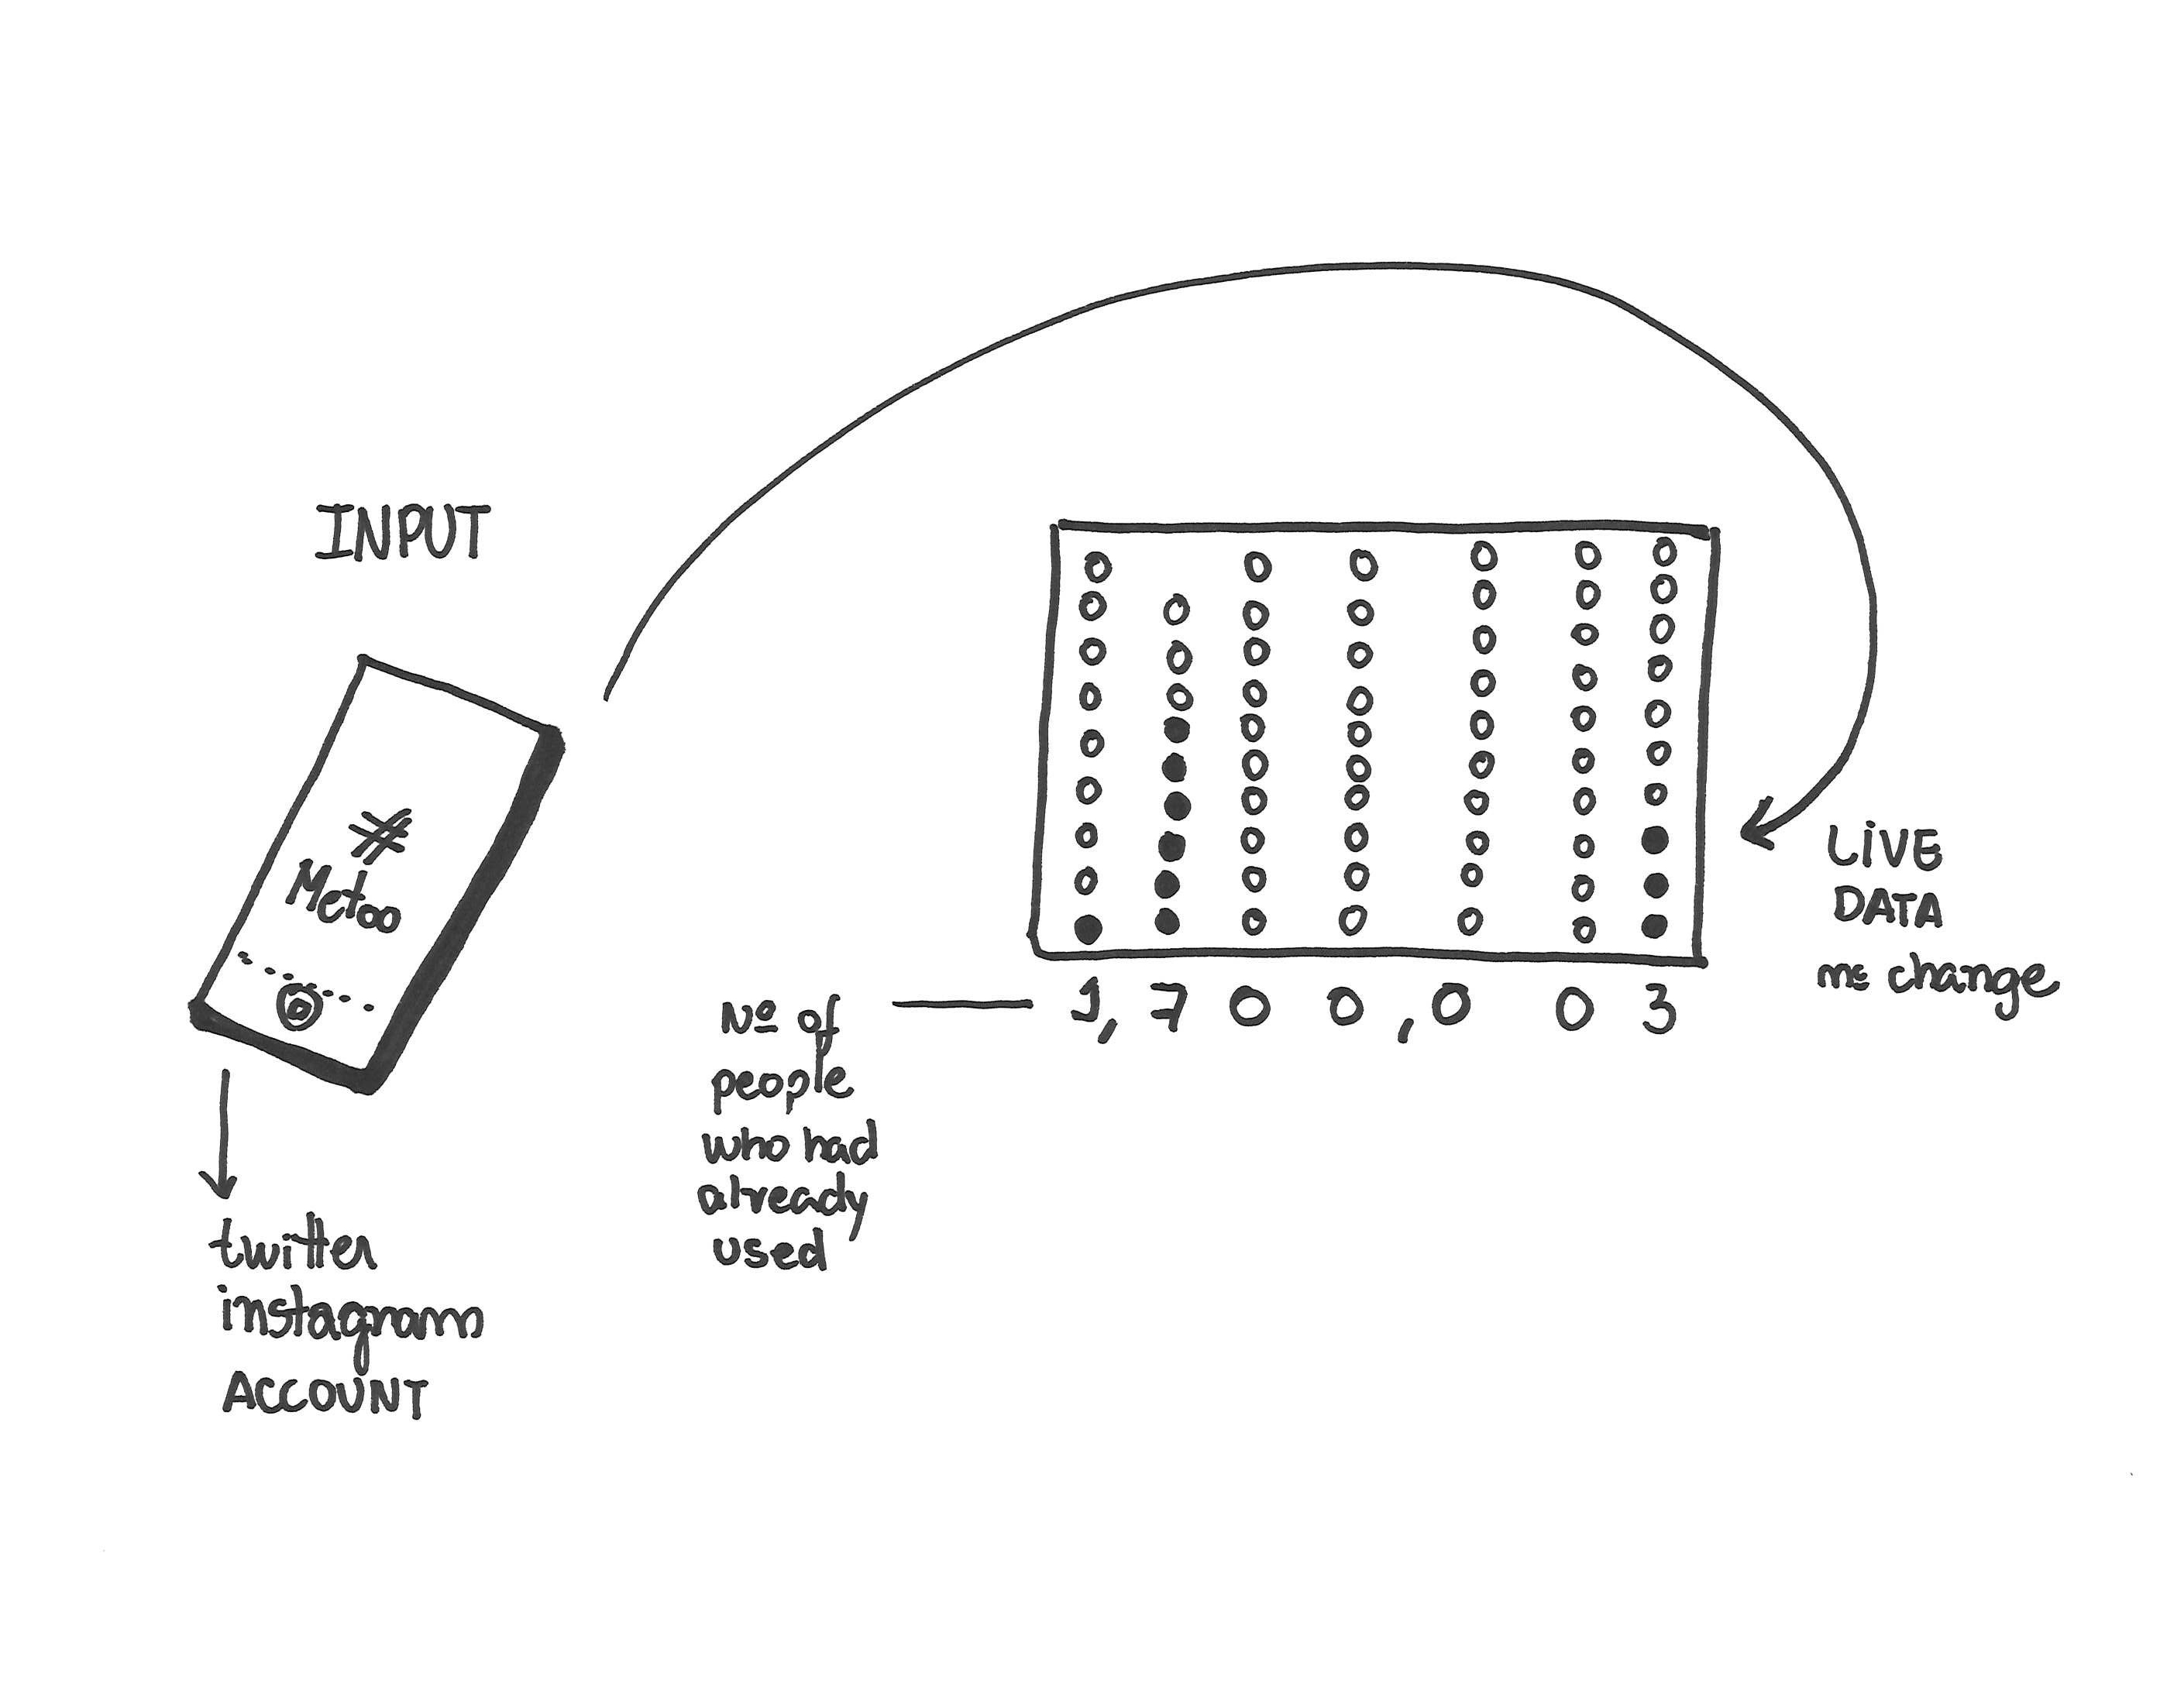 INPUT
#
Metoo
twitter
instagram
ACCOUNT
Nº of
people
who had
already
used
1,700,003
LIVE
DATA
ms change